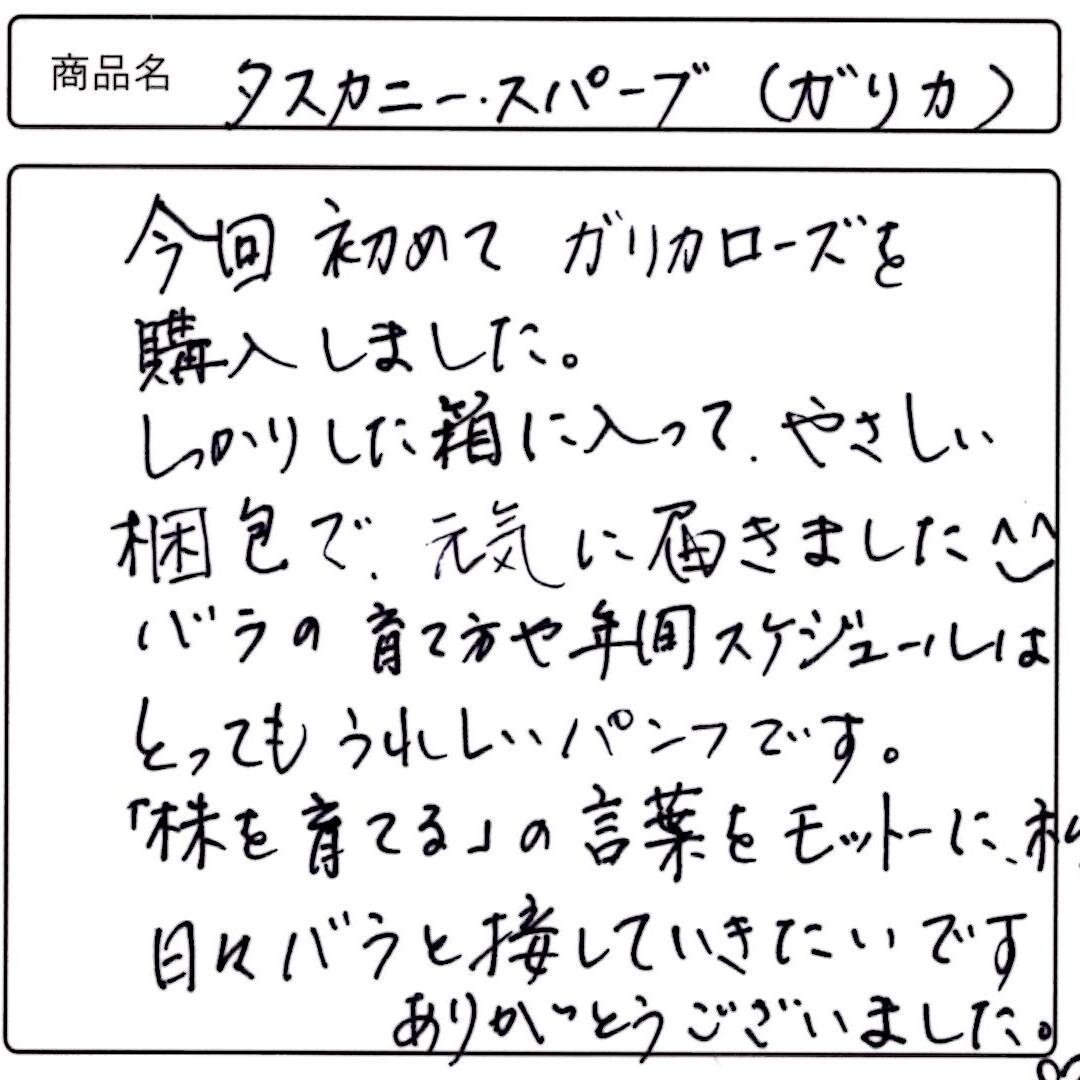 商品名 タスカニー・スパーブ（ガリカ）
今回 初めて ガリカローズを
購入しました。
しっかりした箱に入って、やさしい
梱包で、元気に届きました^^
バラの育て方や年間スケジュールは
とってもうれしいパンフです。
「株を育てる」の言葉をモットーに、
日々バラと接していきたいです
ありがとうございました。